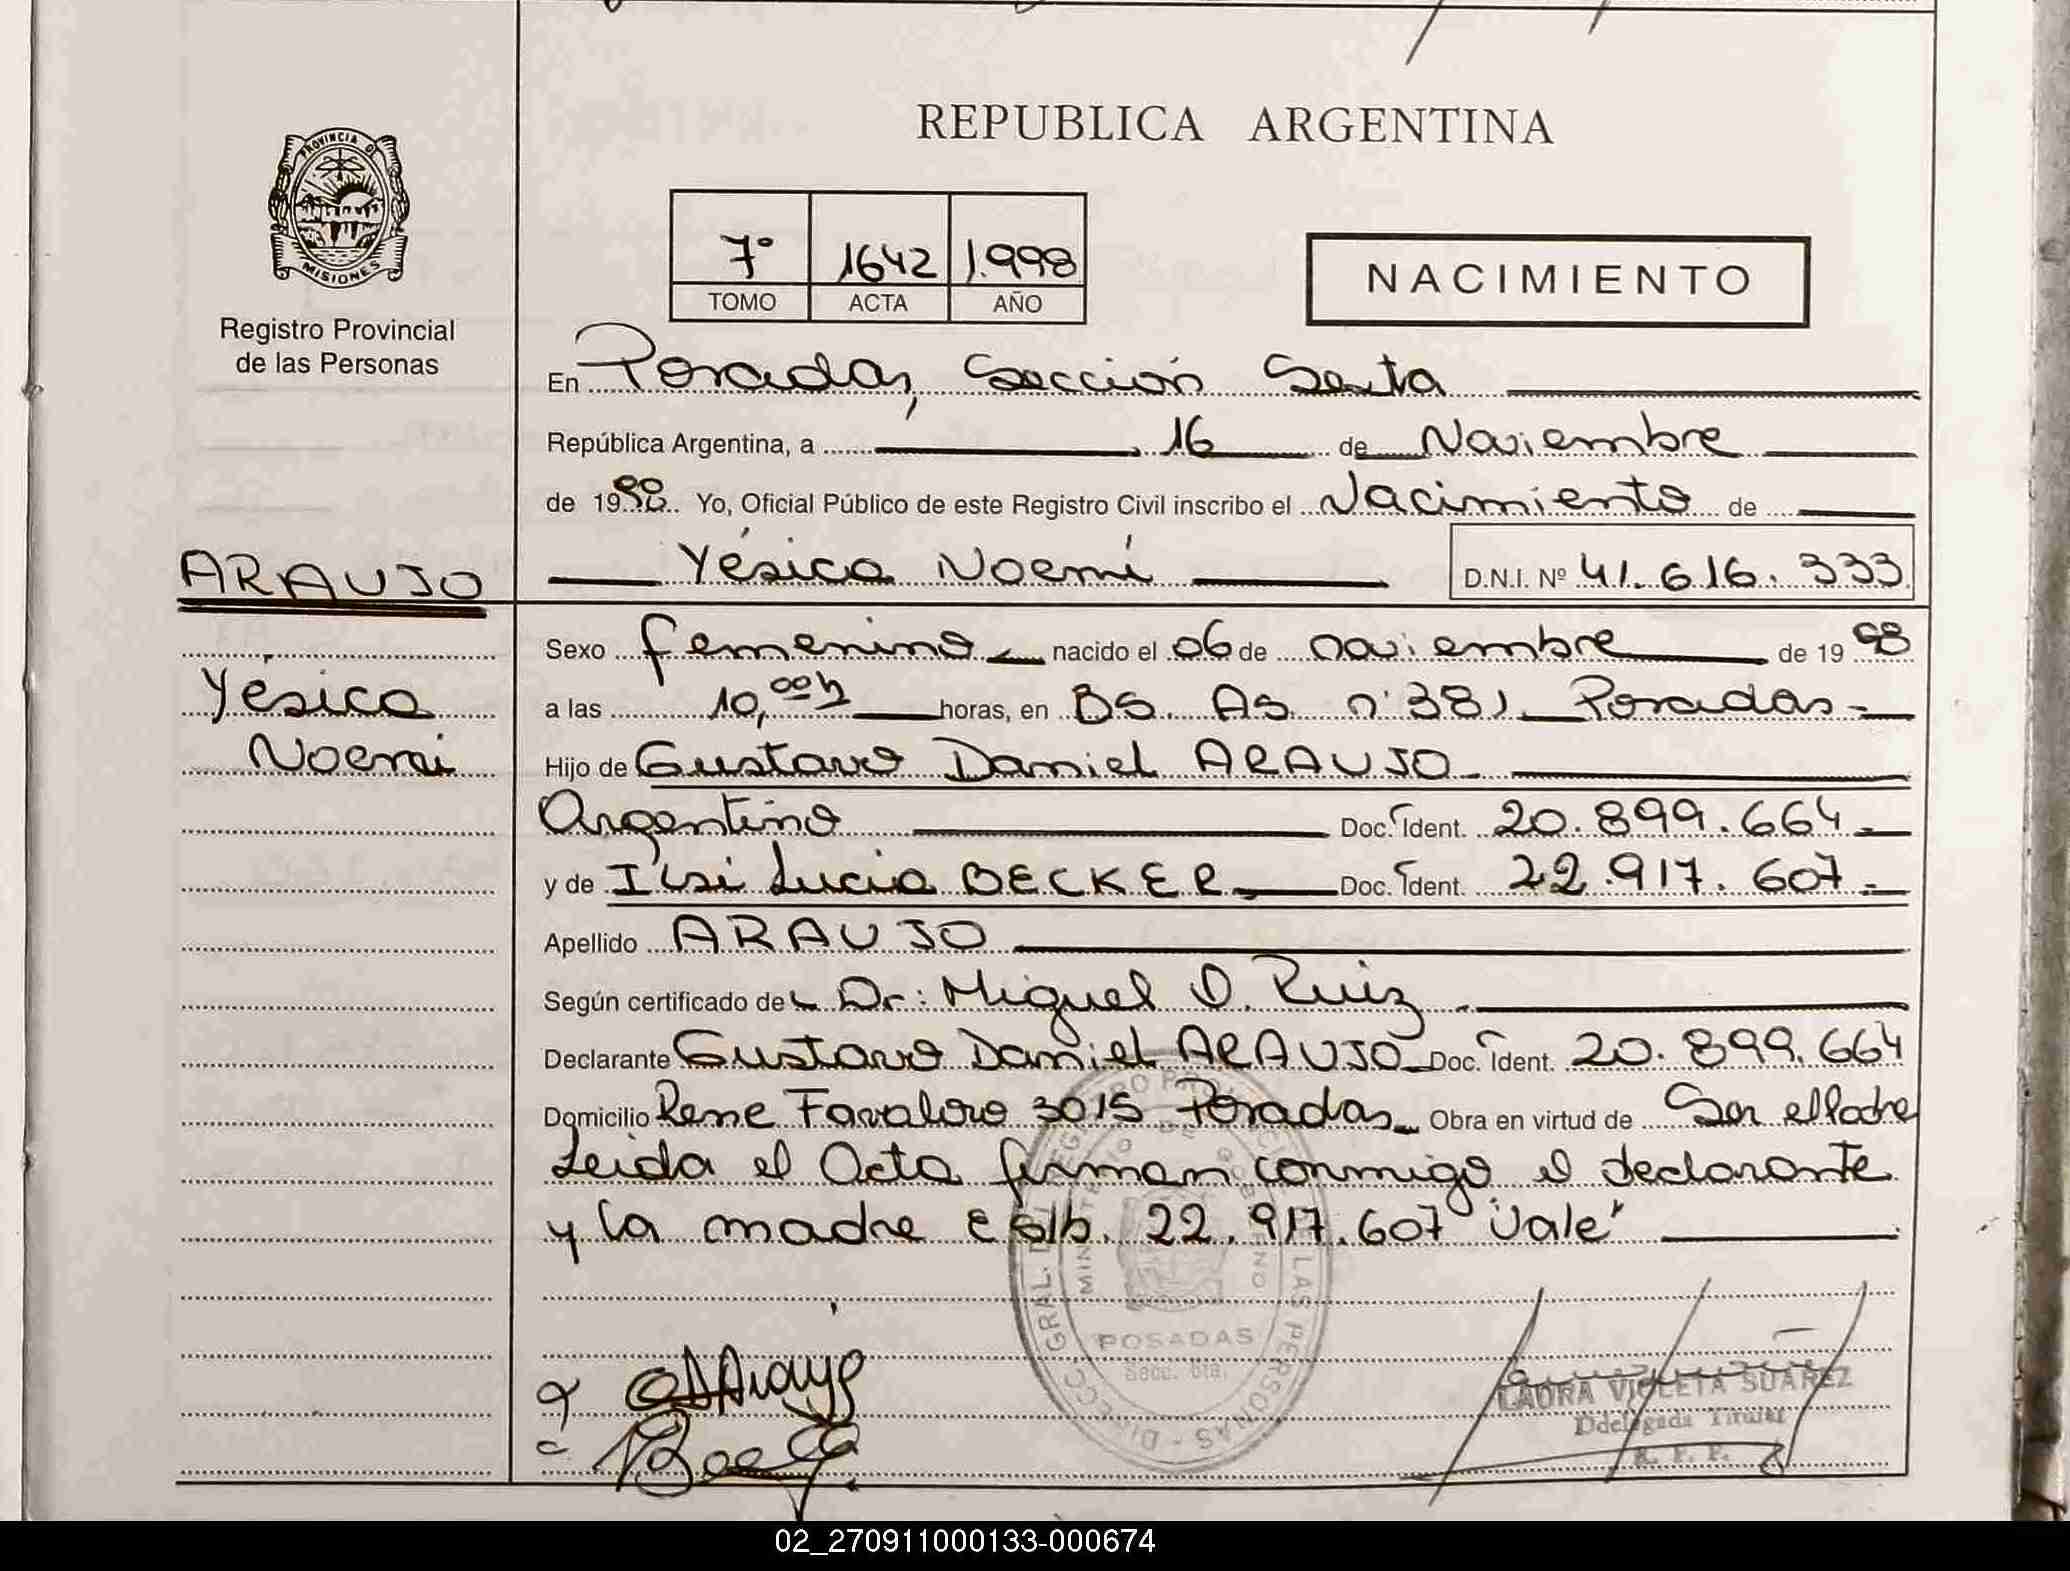 REPUBLICA ARGENTINA
PROVINCIA D
MISIONES
Registro Provincial
de las Personas
7° 1642 1.998
TOMO ACTA AÑO
NACIMIENTO
En Posadas, Sección Sexta
República Argentina, a 16 de Noviembre
de 1998 Yo, Oficial Público de este Registro Civil inscribo el Nacimiento de
Yésica Noemí D.N.I. Nº 41.616.333
ARAUJO
Yésica
Noemi
Sexo femenino nacido el 06 de noviembre de 19 98
a las 10,00 h horas, en BS. AS. n° 381 Posadas
Hijo de Gustavo Daniel ARAUJO
Argentino Doc. Ident. 20.899.664
y de Ilsi Lucia BECKER Doc. Ident. 22.917.607
Apellido ARAUJO
Según certificado de Dr: Miguel O. Ruiz
Declarante Gustavo Daniel ARAUJO Doc. Ident. 20.899.664
Domicilio Rene Favaloro 3015 Posadas Obra en virtud de Ser el Padre
Leida el Acta firman conmigo el declarante
y la madre E s/b. 22.917.607 "Vale"
POSADAS
Secc. 6ta.
LAURA VIOLETA SUAREZ
Ddelegada Titular
R. P. P.
02_270911000133-000674